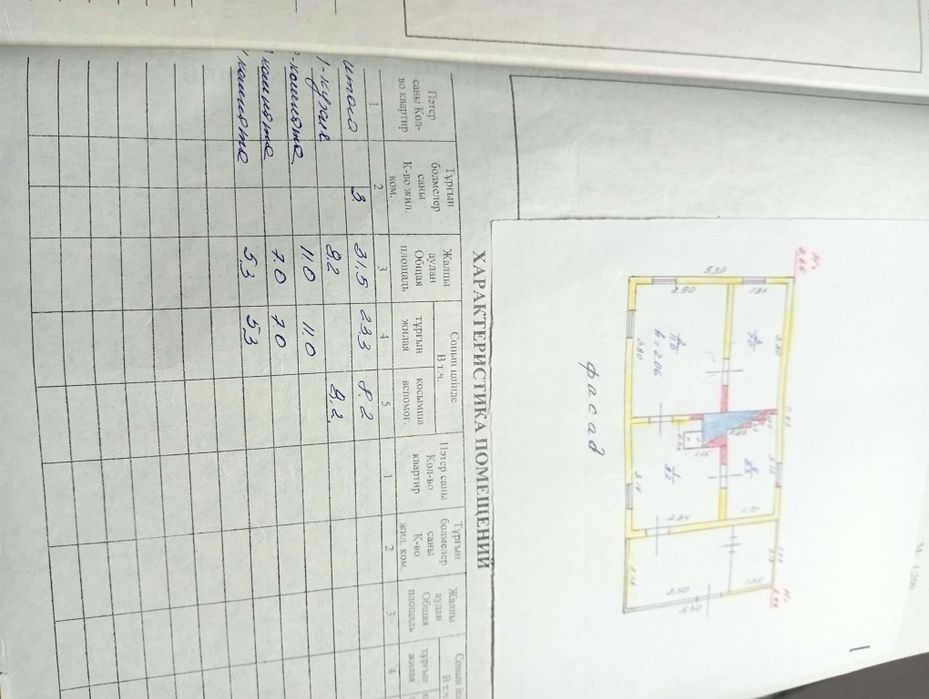 М 1:200
Н=
2.65
5.30
2.90
1.81
3.80
3.80
h=2.06
7.0
2.43
1.15
3.14
2.84
1.70
3.50
1.55
Н=
2.45
фасад
ХАРАКТЕРИСТИКА ПОМЕЩЕНИЙ
Пәтер саны Кол-во квартир
Тұрғын бөлмелер саны К-во жил. ком.
Жалпы аудан Общая площадь
Сонын ішінде В т.ч.
тұрғын жилая
косымша вспомог.
Пәтер саны Кол-во квартир
Тұрғын бөлмелер саны К-во жил. ком.
Жалпы аудан Общая площадь
Сонын іш
В т.ч.
тұрғын жилая
1 2 3 4 5 1 2 3 4
итого 3. 31.5 23.3 8.2
1-кухня 8.2 8.2.
комната 11.0 11.0
комната 7.0 7.0
комната 5.3 5.3